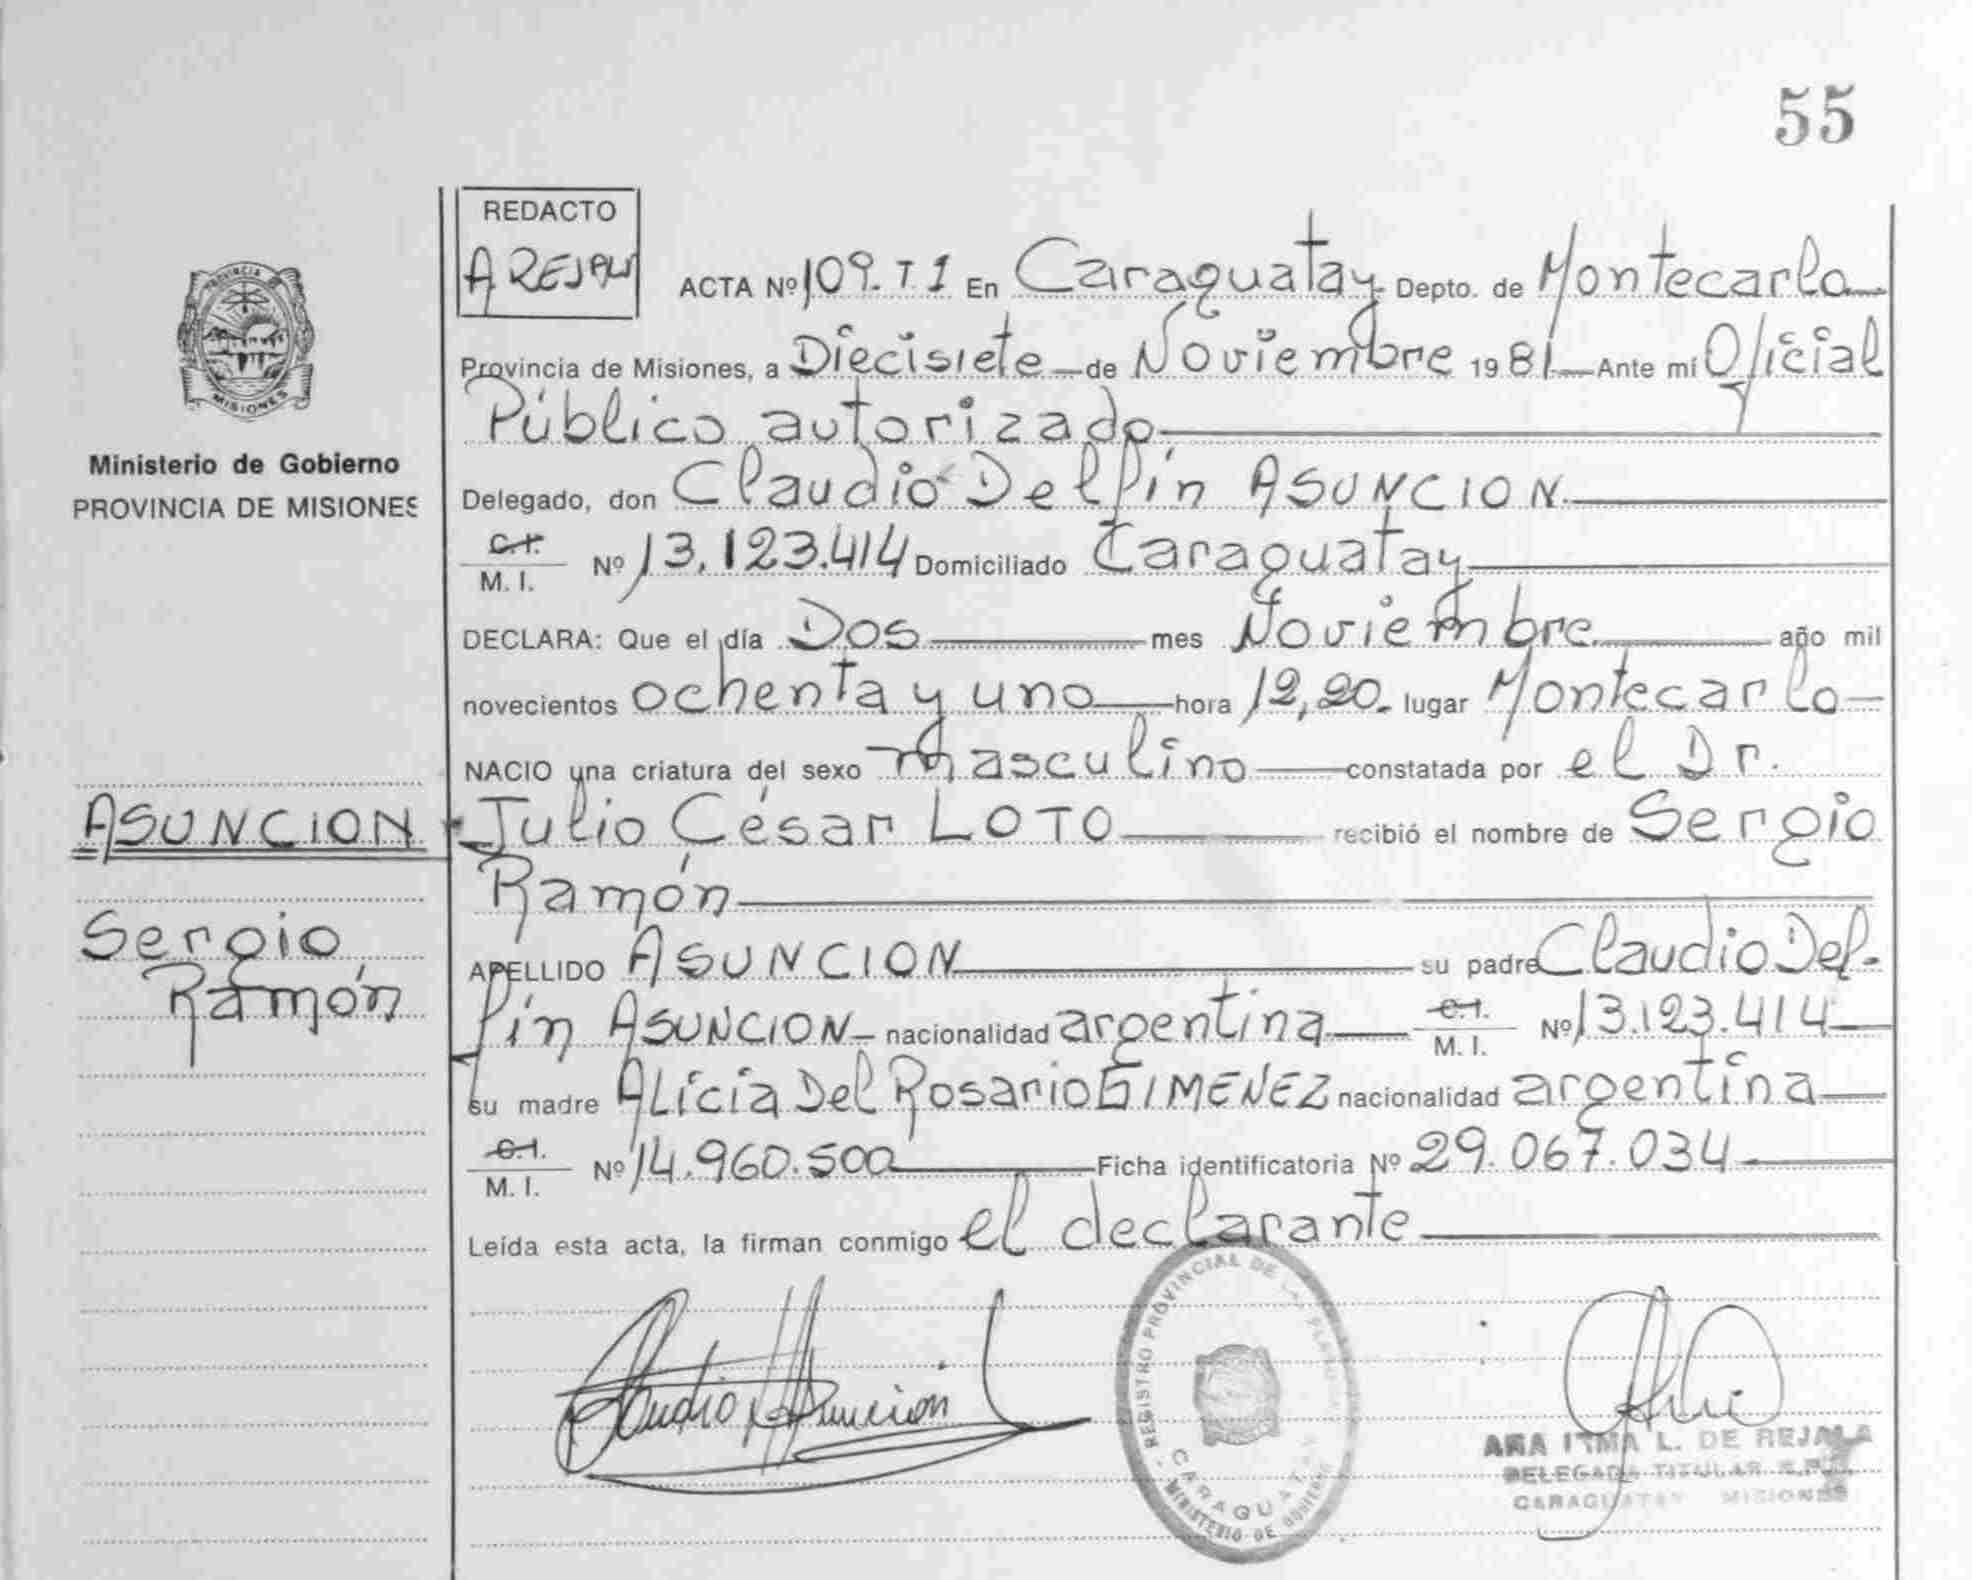 55
REDACTO
A REJALA
ACTA Nº 109. T 1 En Caraguatay Depto. de Montecarlo
Provincia de Misiones, a Diecisiete de Noviembre 1981 Ante mí Oficial
Público autorizado
Delegado, don Claudio Delfín ASUNCION
C.I. M. I. Nº 13.123.414 Domiciliado Caraguatay
DECLARA: Que el día Dos mes Noviembre año mil
novecientos ochenta y uno hora 12,20 lugar Montecarlo
NACIO una criatura del sexo masculino constatada por el Dr.
Julio César LOTO recibió el nombre de Sergio
Ramón
APELLIDO ASUNCION su padre Claudio Del-
fín ASUNCION nacionalidad argentina C.I. M. I. Nº 13.123.414
su madre Alicia Del Rosario GIMENEZ nacionalidad argentina
C.I. M. I. Nº 14.960.500 Ficha identificatoria Nº 29.067.034
Leída esta acta, la firman conmigo el declarante
PROVINCIA
MISIONES
Ministerio de Gobierno
PROVINCIA DE MISIONES
ASUNCION
Sergio
Ramón
Claudio Asuncion
REGISTRO PROVINCIAL DE LAS
CARAGUATAY
MINISTERIO DE GOBIERNO
L. DE REJALA
DELEGADA TITULAR
CARAGUATAY MISIONES